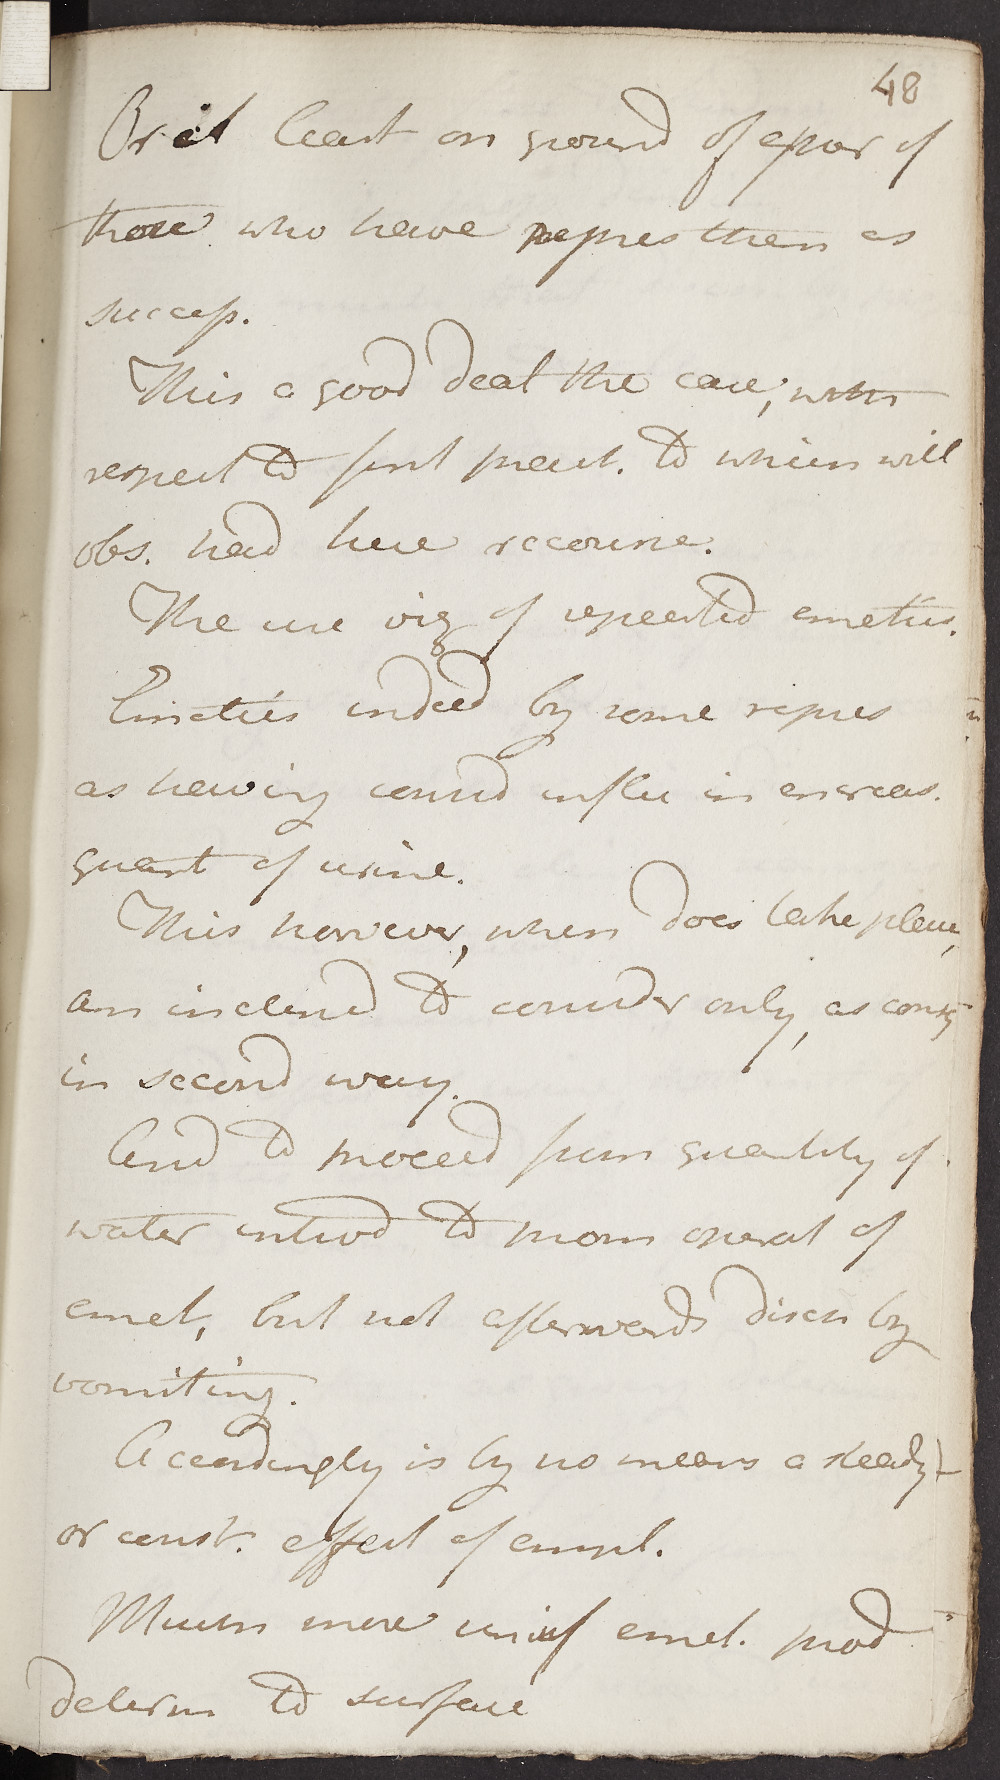 48
Or at least on ground of appar of
those who have repres them as
success.
This a good deal the case, with
respect to first pract. to which will
obs. had here recourse.
The use viz of repeated emetics.
Emetics indeed by some repres
as having consid influ in encreas.
quant of urine.
This however, when does take place,
am inclined to consider only, as consq
in second way.
And to proceed from quantity of
water introd to prom operat of
emet, but not afterwards disch by
vomiting.
Accordingly is by no means a steady
or const. effect of empl.
Much more unif emet. prod
determ to surface